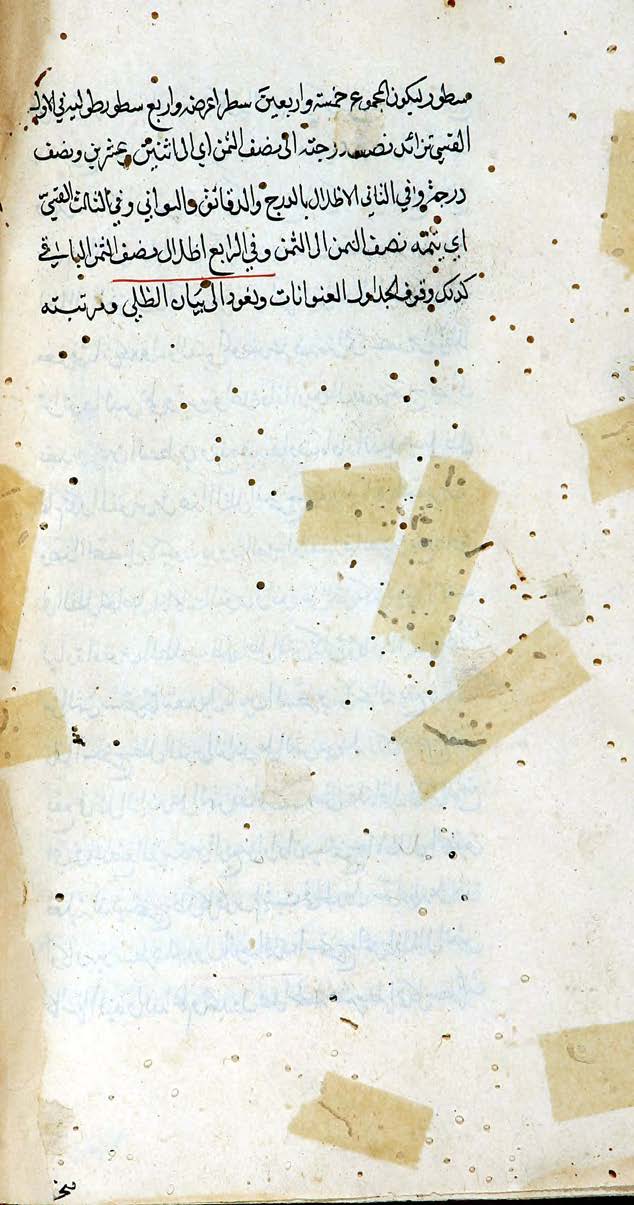 سطور ليكون المجموع خمسة واربعين سطرا عرضه واربع سطور طوليه في الاول
القسي تزائد نصف درجته الى نصف الثمن اي الى اثنين وعشرين ونصف
درجة وفي الثاني الاظلال بالدرج والدقائق والثواني وفي الثالث القسي
اي تتمة نصف الثمن الى الثمن وفي الرابع اظلال نصف الثمن الباقي
كذلك وفوق الجداول العنوانات ويعود الى بيان الظلي ومرتبته